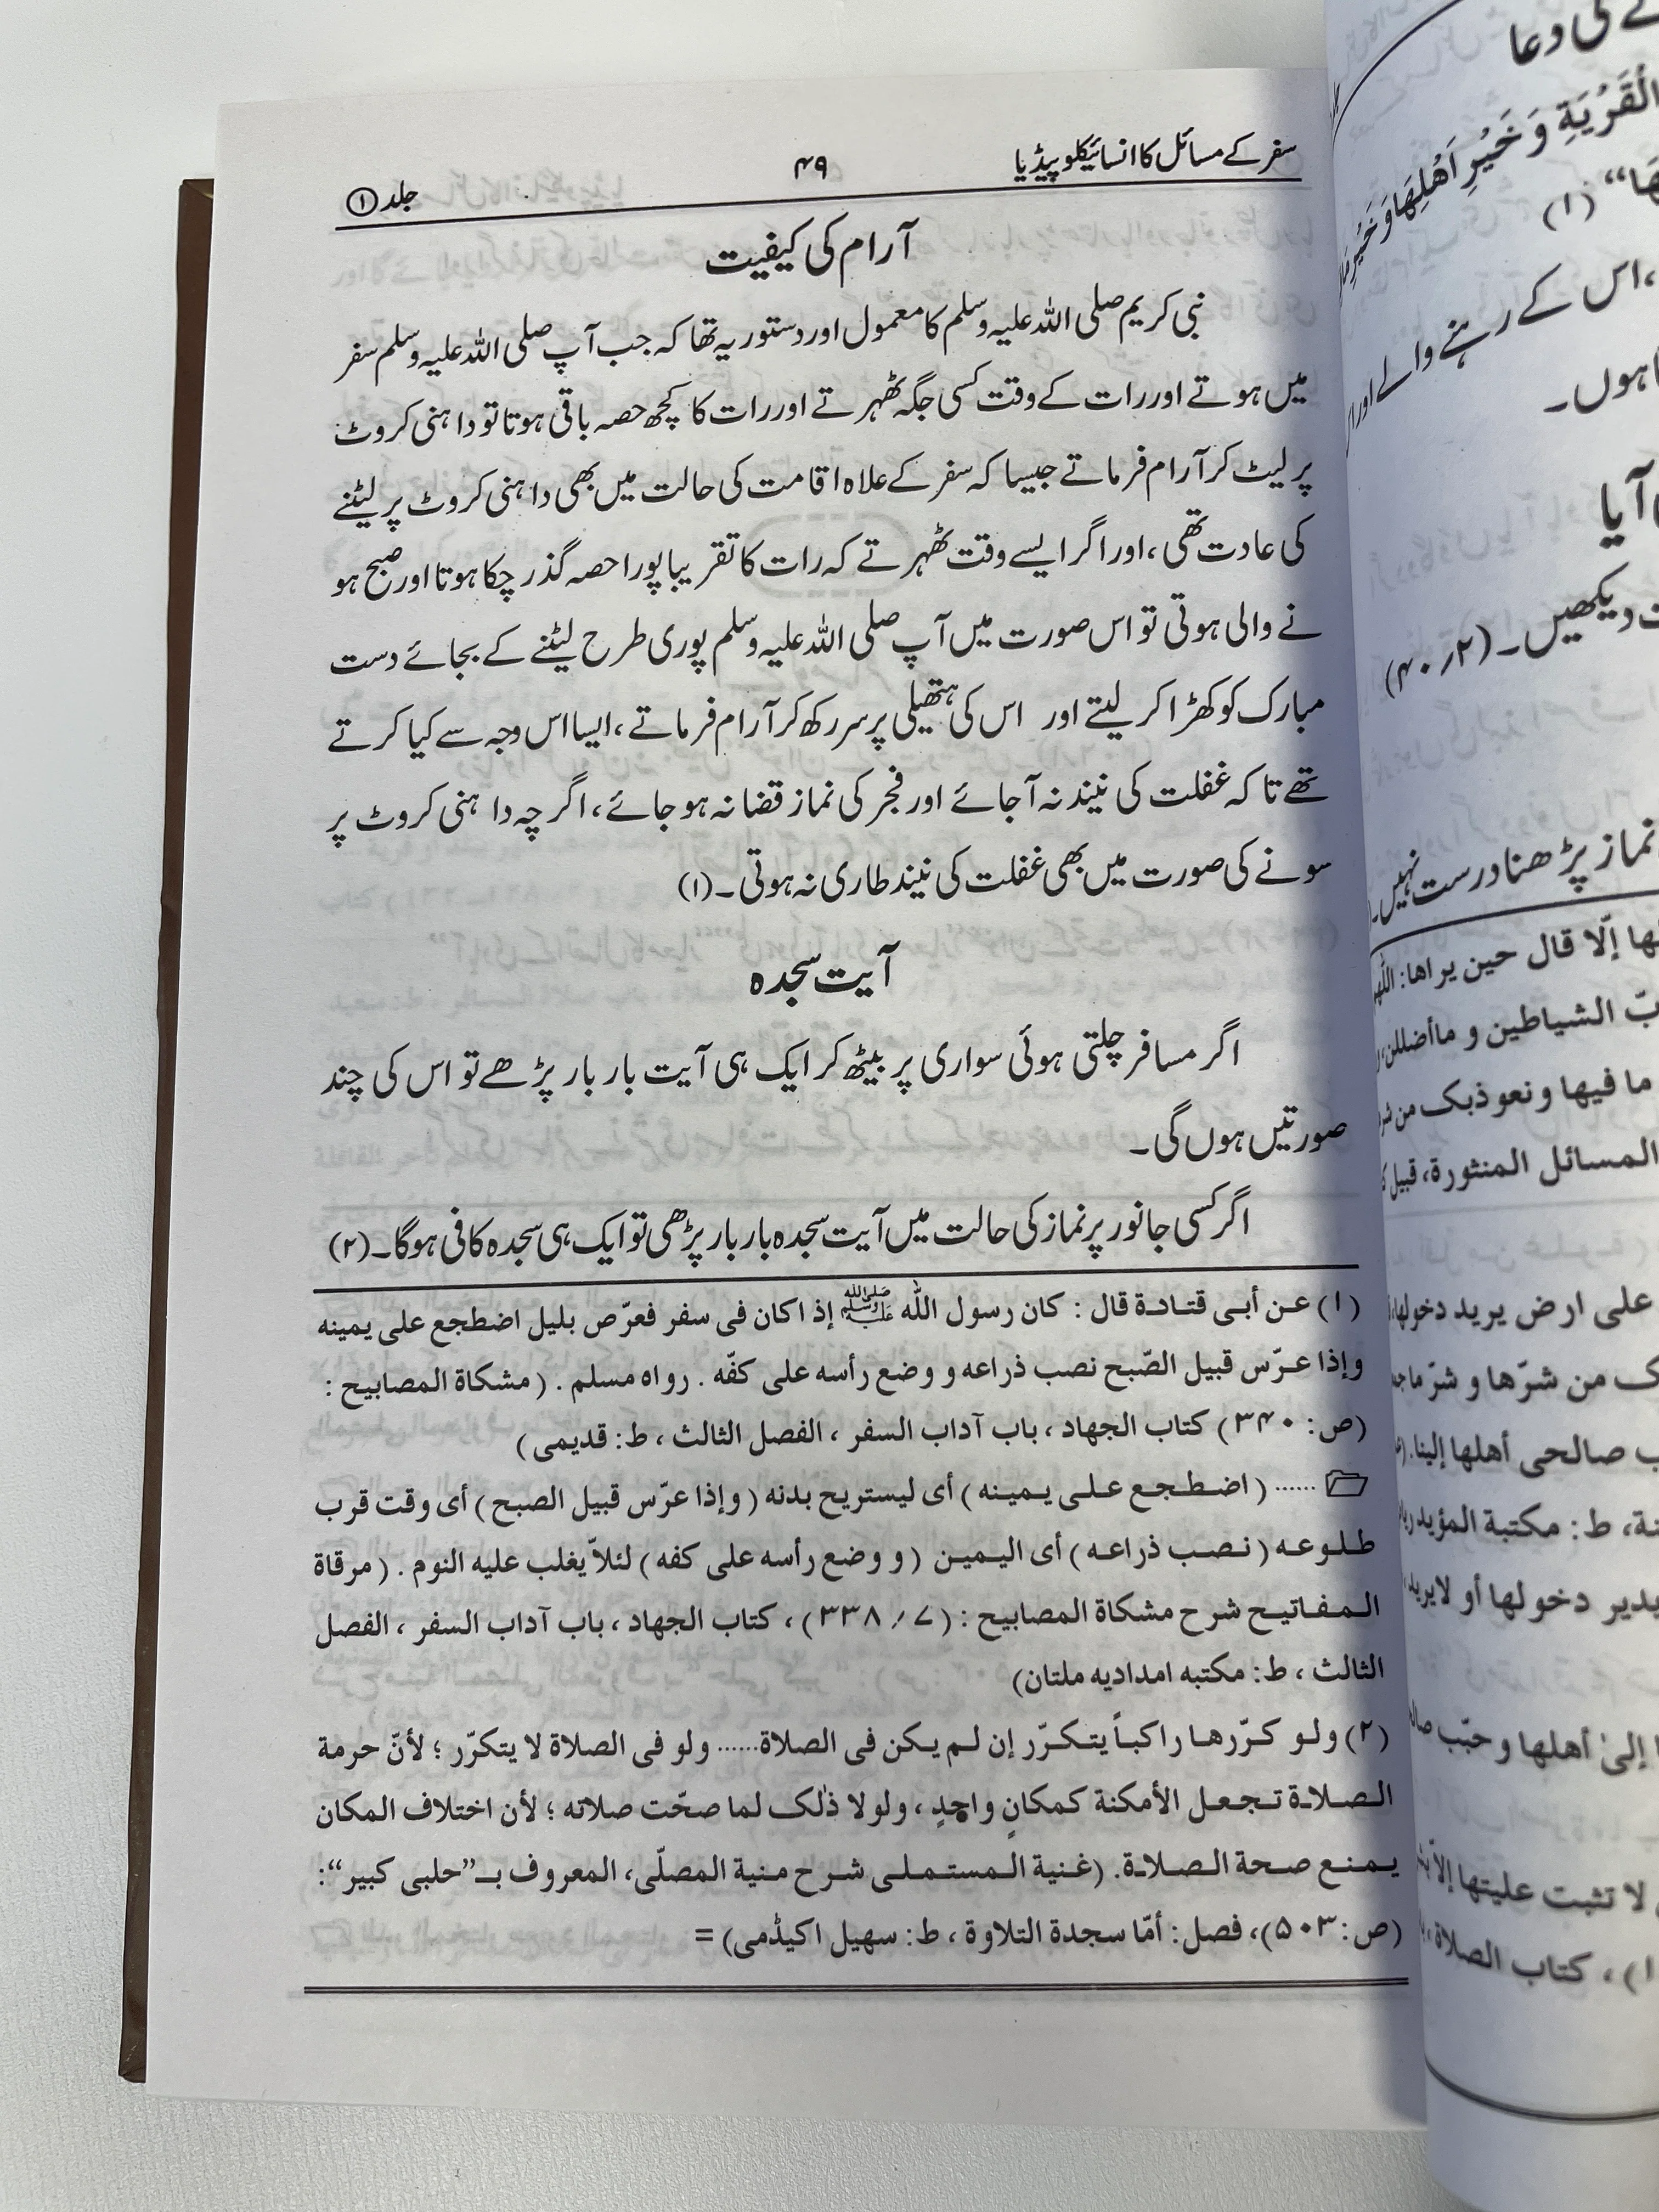 سفر کے مسائل کا انسائیکلوپیڈیا ۴۹ جلد ۱
آرام کی کیفیت
نبی کریم صلی اللہ علیہ وسلم کا معمول اور دستور یہ تھا کہ جب آپ صلی اللہ علیہ وسلم سفر
میں ہوتے اور رات کے وقت کسی جگہ ٹھہرتے اور رات کا کچھ حصہ باقی ہوتا تو داہنی کروٹ
پر لیٹ کر آرام فرماتے جیسا کہ سفر کے علاہ اقامت کی حالت میں بھی داہنی کروٹ پر لیٹنے
کی عادت تھی، اور اگر ایسے وقت ٹھہرتے کہ رات کا تقریبا پورا حصہ گذر چکا ہوتا اور صبح ہو
نے والی ہوتی تو اس صورت میں آپ صلی اللہ علیہ وسلم پوری طرح لیٹنے کے بجائے دست
مبارک کو کھڑا کر لیتے اور اس کی ہتھیلی پر سر رکھ کر آرام فرماتے، ایسا اس وجہ سے کیا کرتے
تھے تا کہ غفلت کی نیند نہ آجائے اور فجر کی نماز قضا نہ ہو جائے، اگر چہ داہنی کروٹ پر
سونے کی صورت میں بھی غفلت کی نیند طاری نہ ہوتی۔(۱)
آیت سجدہ
اگر مسافر چلتی ہوئی سواری پر بیٹھ کر ایک ہی آیت بار بار پڑھے تو اس کی چند
صورتیں ہوں گی۔
اگر کسی جانور پر نماز کی حالت میں آیت سجدہ بار بار پڑھی تو ایک ہی سجدہ کافی ہوگا۔(۲)
(۱) عن أبی قتادة قال : کان رسول الله ﷺ إذ اکان فی سفر فعرّص بلیل اضطجع علی یمینه
وإذا عرّس قبیل الصّبح نصب ذراعه و وضع رأسه علی کفّه . رواه مسلم . ( مشکاة المصابیح :
(ص: ۳۴۰) کتاب الجهاد ، باب آداب السفر ، الفصل الثالث ، ط: قدیمی)
...... ( اضطجع علی یمینه ) أی لیستریح بدنه ( وإذا عرّس قبیل الصبح ) أی وقت قرب
طلوعه ( نصب ذراعه ) أی الیمین ( و وضع رأسه علی کفه ) لئلاّ یغلب علیه النوم . ( مرقاة
المفاتیح شرح مشکاة المصابیح : (۷ / ۳۳۸) ، کتاب الجهاد ، باب آداب السفر ، الفصل
الثالث ، ط: مکتبه امدادیه ملتان)
(۲) ولو کرّرها راکباً یتکرّر إن لم یکن فی الصلاة...... ولو فی الصلاة لا یتکرّر ؛ لأنّ حرمة
الصلاة تجعل الأمکنة کمکانٍ واحدٍ ، ولولا ذٰلک لما صحّت صلاته ؛ لأن اختلاف المکان
یمنع صحة الصلاة. (غنیة المستملی شرح منیة المصلّی، المعروف بـ”حلبی کبیر“:
(ص: ۵۰۳)، فصل: أمّا سجدة التلاوة ، ط: سهیل اکیڈمی) =
کی دعا
الْقَرْیَةِ وَ خَیْرِ اَهْلِهَا وَ خَیْرِ
ھَا“ (۱)
،اس کے رہنے والے اور
ہوں۔
آیا
دیکھیں۔(۲/۴۰)
نماز پڑھنا درست نہیں۔
إلّا قال حین یراها: اللّٰهم
الشیاطین و ماأضللن
ما فیها ونعوذبک من
المسائل المنثورة، قبیل
علی ارض یرید دخولها
من شرّها و شرّ
صالحی أهلها إلینا.
ط: مکتبة المؤید
دخولها أو لایرید
إلیٰ أهلها وحبّب
لا تثبت علیتها
، کتاب الصلاة